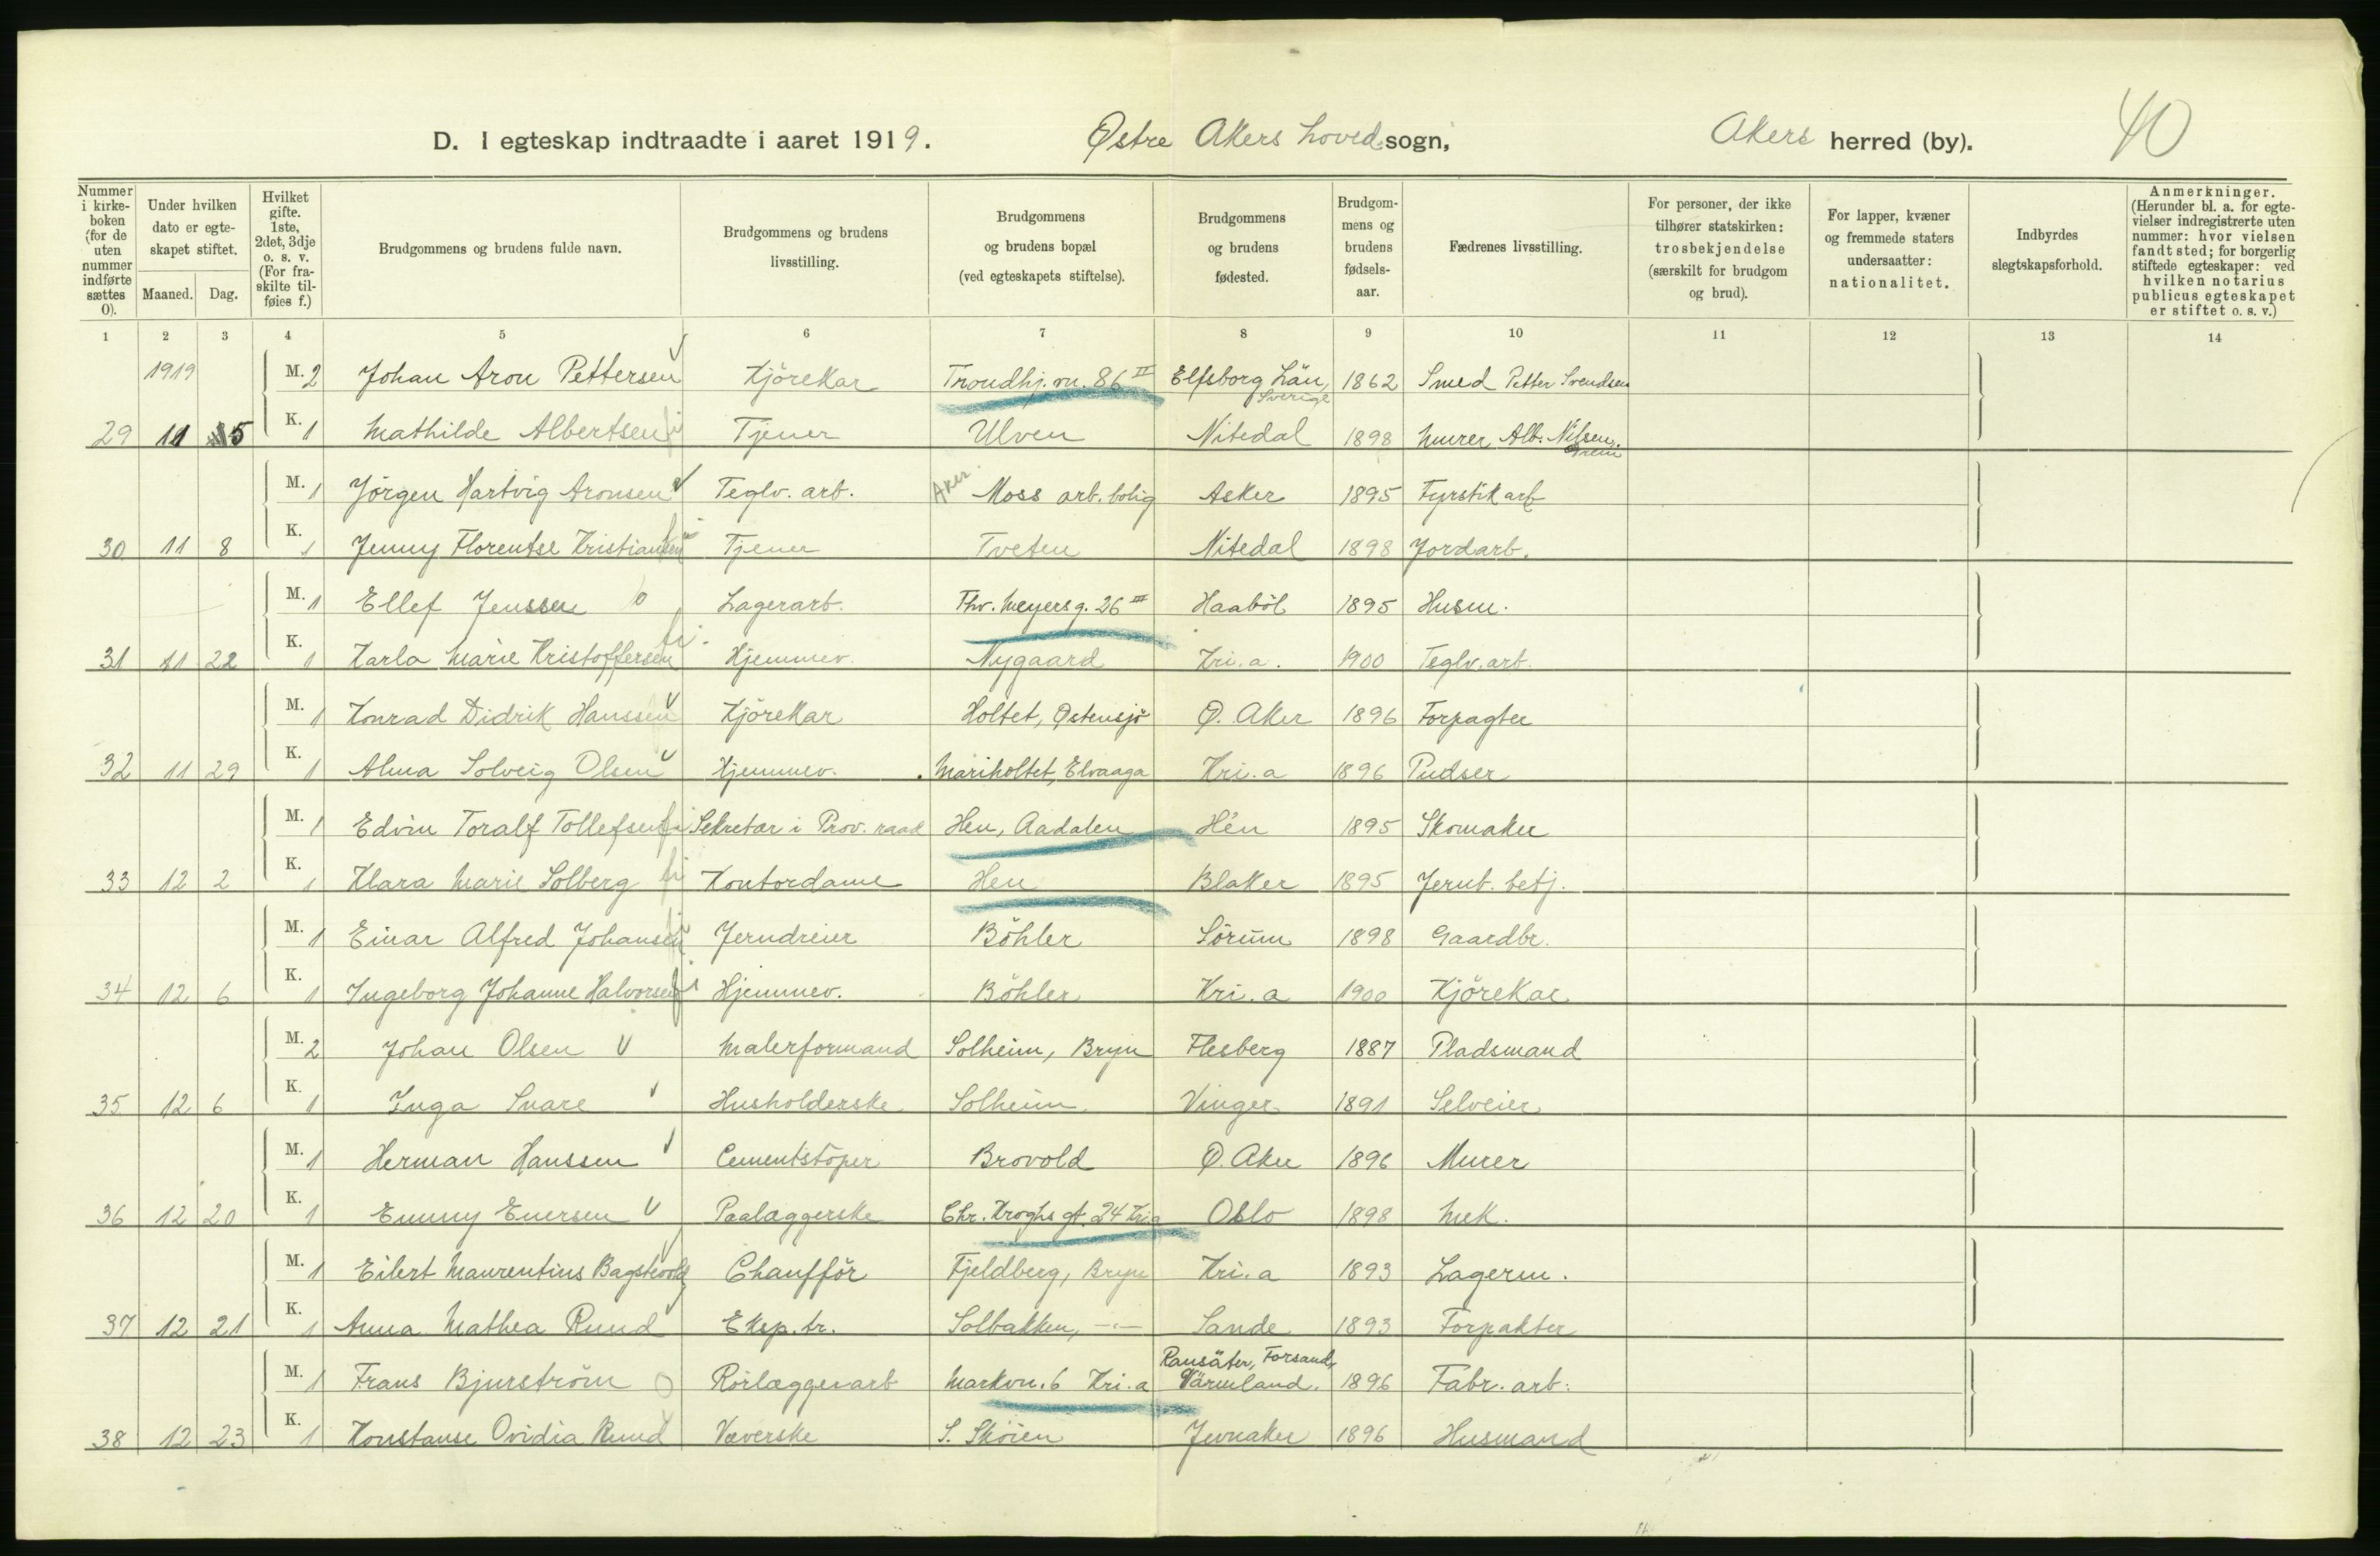 40
D. I egteskap indtraadte i aaret 1919. Østre Akers hovedsogn, Akers herred (by).
Nummer i kirkeboken (for de uten nummer indførte sættes 0). Under hvilken dato er egteskapet stiftet. Maaned. Dag. Hvilket gifte. 1ste, 2det, 3dje o. s. v. (For fraskilte tilføies f.) Brudgommens og brudens fulde navn. Brudgommens og brudens livsstilling. Brudgommens og brudens bopæl (ved egteskapets stiftelse). Brudgommens og brudens fødested. Brudgommens og brudens fødselsaar. Fædrenes livsstilling. For personer, der ikke tilhører statskirken: trosbekjendelse (særskilt for brudgom og brud). For lapper, kvæner og fremmede staters undersaatter: nationalitet. Indbyrdes slegtskapsforhold. Anmerkninger. (Herunder bl. a. for egtevielser indregistrerte uten nummer: hvor vielsen fandt sted; for borgerlig stiftede egteskaper: ved hvilken notarius publicus egteskapet er stiftet o. s. v.)
1 2 3 4 5 6 7 8 9 10 11 12 13 14
1919 M. 2 Johan Aron Pettersen Kjörekar Trondhj.vn. 86 II Elfsborg Län, Sverige 1862 Smed Petter Svendsen
29 11 5 K. 1 Mathilde Albertsen Tjener Ulven Nitedal 1898 Murer Alb. Nilsen
M. 1 Jörgen Hartvig Aronsen Teglv. arb. Aker Moss arb. bolig Asker 1895 Fyrstikarb
30 11 8 K. 1 Jenny Florentse Kristiansen Tjener Tveten Nitedal 1898 Jordarb.
M. 1 Ellef Jenssen Lagerarb. Thv. Meyersg. 26 III Haaböl 1895 Husm.
31 11 22 K. 1 Karla Marie Kristoffersen Hjemmev. Nygaard Kri.a. 1900 Teglv. arb.
M. 1 Konrad Didrik Hanssen Kjörekar Holtet, Østensjö Ø. Aker 1896 Forpagter
32 11 29 K. 1 Alma Solveig Olsen Hjemmev. Mariholtet, Elvaaga Kri.a 1896 Pudser
M. 1 Edvin Toralf Tollefsen Sekretær i Prov. raad Hen, Aadalen Hén 1895 Skomaker
33 12 2 K. 1 Klara Marie Solberg Kontordame Hen Blaker 1895 Jernb. betj.
M. 1 Einar Alfred Johansen Jerndreier Böhler Sörum 1898 Gaardbr.
34 12 6 K. 1 Ingeborg Johanne Halvorsen Hjemmev. Böhler Kri.a 1900 Kjörekar
M. 2 Johan Olsen Malerformand Solheim, Bryn Flesberg 1887 Pladsmand
35 12 6 K. 1 Inga Snare Husholderske Solheim Vinger 1891 Selveier
M. 1 Herman Hanssen Cementstöper Brovold Ø. Aker 1896 Murer
36 12 20 K. 1 Emmy Enersen Paalæggerske Chr. Kroghs gt. 24 Kri.a Oslo 1898 Mek.
M. 1 Eilert Maurentius Bagstevold Chaufför Fjeldberg, Bryn Kri.a 1893 Lagerm.
37 12 21 K. 1 Anna Mathea Ruud Eksp. tr. Solbakken, —"— Sande 1893 Forpakter
M. 1 Frans Bjurström Rörlæggerarb Markvn. 6 Kri.a Ransäter, Forsand, Värmland. 1896 Fabr. arb.
38 12 23 K. 1 Konstanse Ovidia Ruud Væverske S. Skøien Jevnaker 1896 Husmand